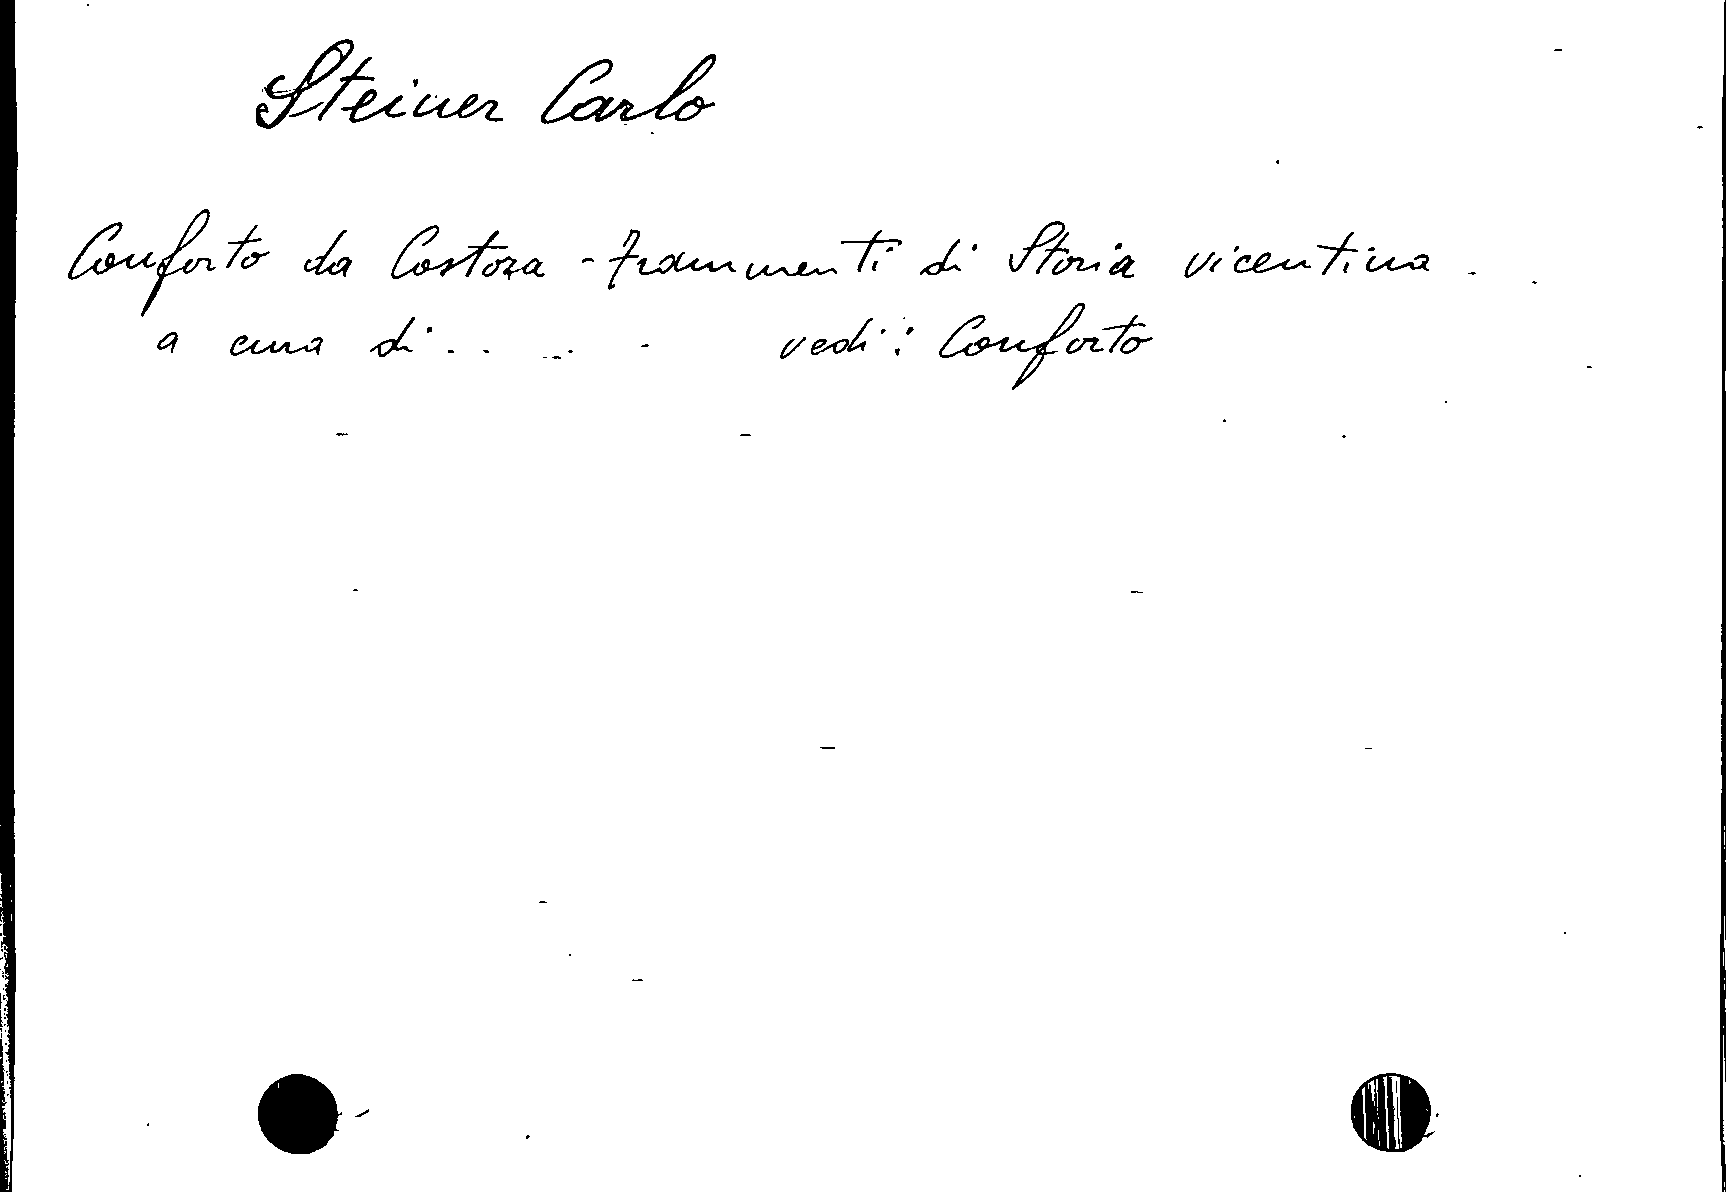 Steiner Carlo
Conforto da Costoza - frammenti di Storia vicentina.
a cura di..... vedi: Conforto